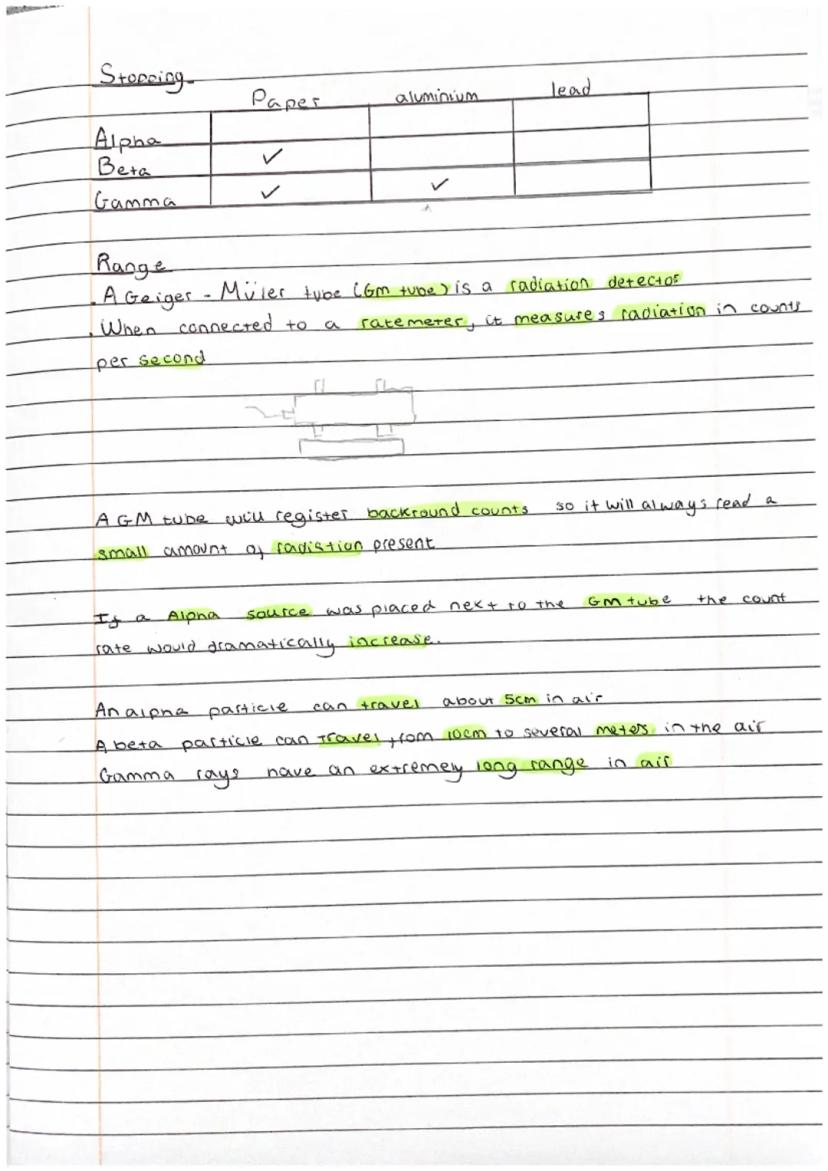 Stopping
Paper aluminium lead
Alpha
Beta ✓
Gamma ✓ ✓
Range
. A Geiger - Müler tube (Gm tube) is a radiation detector
. When connected to a ratemeter, it measures radiation in counts
per second
A GM tube will register backround counts so it will always read a
small amount of radiation present
If a Alpha source was placed next to the GM tube the count
rate would dramatically increase.
An alpha particle can travel about 5cm in air
A beta particle can travel from 10cm to several meters in the air
Gamma rays have an extremely long range in air